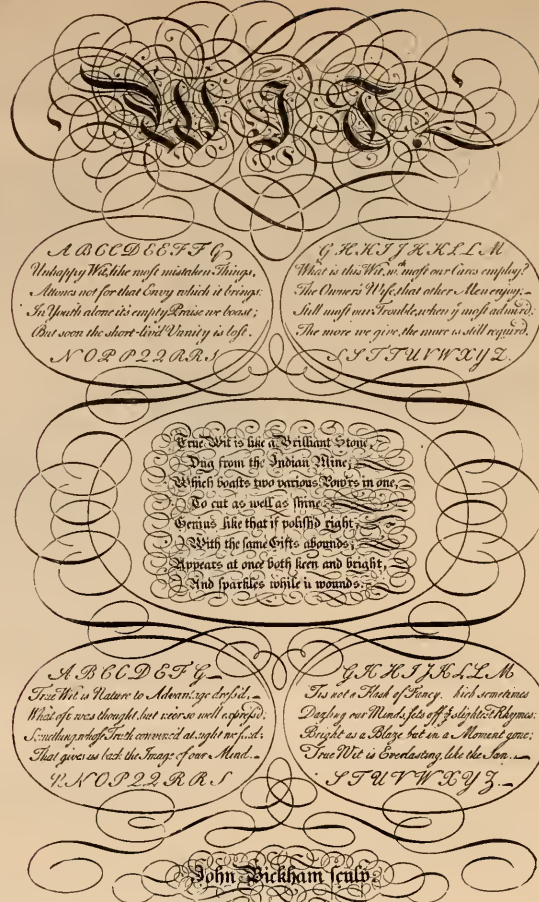 WIT.
A B C C D E E F F G
Unhappy Wit, like most mistaken Things,
Attones not for that Envy which it brings:
In Youth alone it's empty Praise we boast;
But soon the short-liv'd Vanity is lost.
N O P P 2 2 R R S
G H H I J H K L L M
What is this Wit, wch. most our Cares employ?
The Owner's Wife, that other Men enjoy;
Still most our Trouble, when ye most admir'd;
The more we give, the more is still requir'd.
S S T T U V W X Y Z.
True Wit is like a Brilliant Stone,
Dug from the Indian Mine;
Which boasts two various Pow'rs in one,
To cut as well as shine.
Genius like that if polish'd right,
With the same Gifts abounds;
Appears at once both keen and bright,
And sparkles while it wounds.
A B C C D E F G
True Wit is Nature to Advantage dress'd,
What oft was thought, but ne'er so well express'd;
Something, whose Truth convinc'd at sight we find;
That gives us back the Image of our Mind.
N O P 2 2 R R S
G H H I J K L L M
Tis not a Flash of Fancy, which sometimes
Dazling our Minds, sets off ye slightest Rhymes:
Bright as a Blaze but in a Moment gone;
True Wit is Everlasting, like the Sun.
S T U V W X Y Z.
John Bickham sculp.